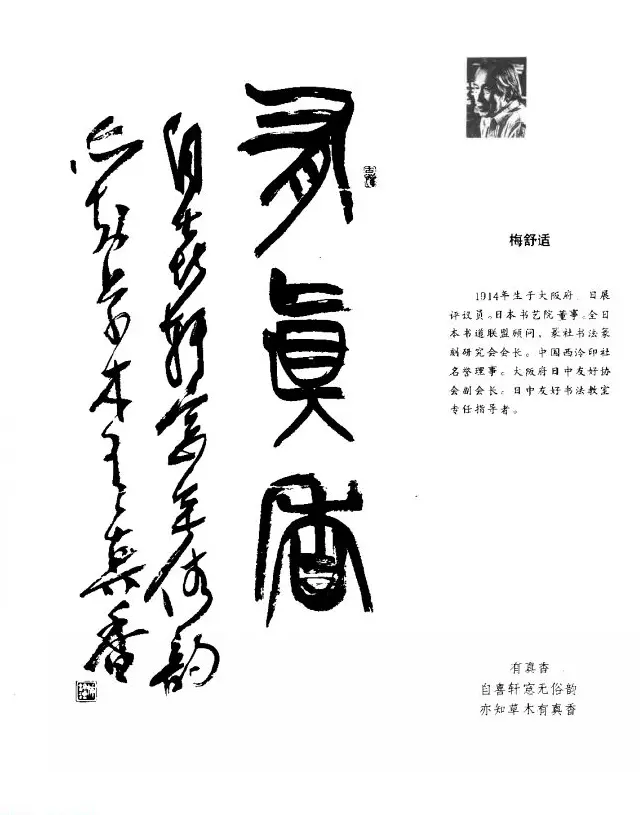 有眞香
自喜軒窓无俗韵
亦知草木有真香
梅舒适
1914年生于大阪府、日展
评议员。日本书艺院董事。全日
本书道联盟顾问，篆社书法篆
刻研究会会长。中国西泠印社
名誉理事。大阪府日中友好协
会副会长。日中友好书法教室
专任指导者。
有真香
自喜轩窓无俗韵
亦知草木有真香